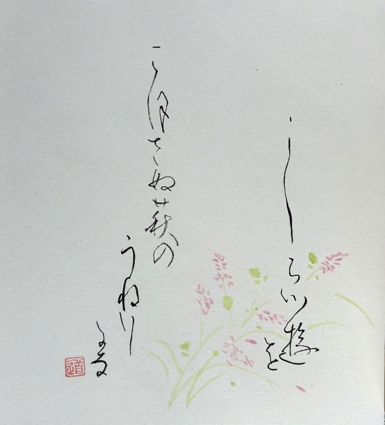 しらつ遊を
こほさぬ萩の
うねり
かな